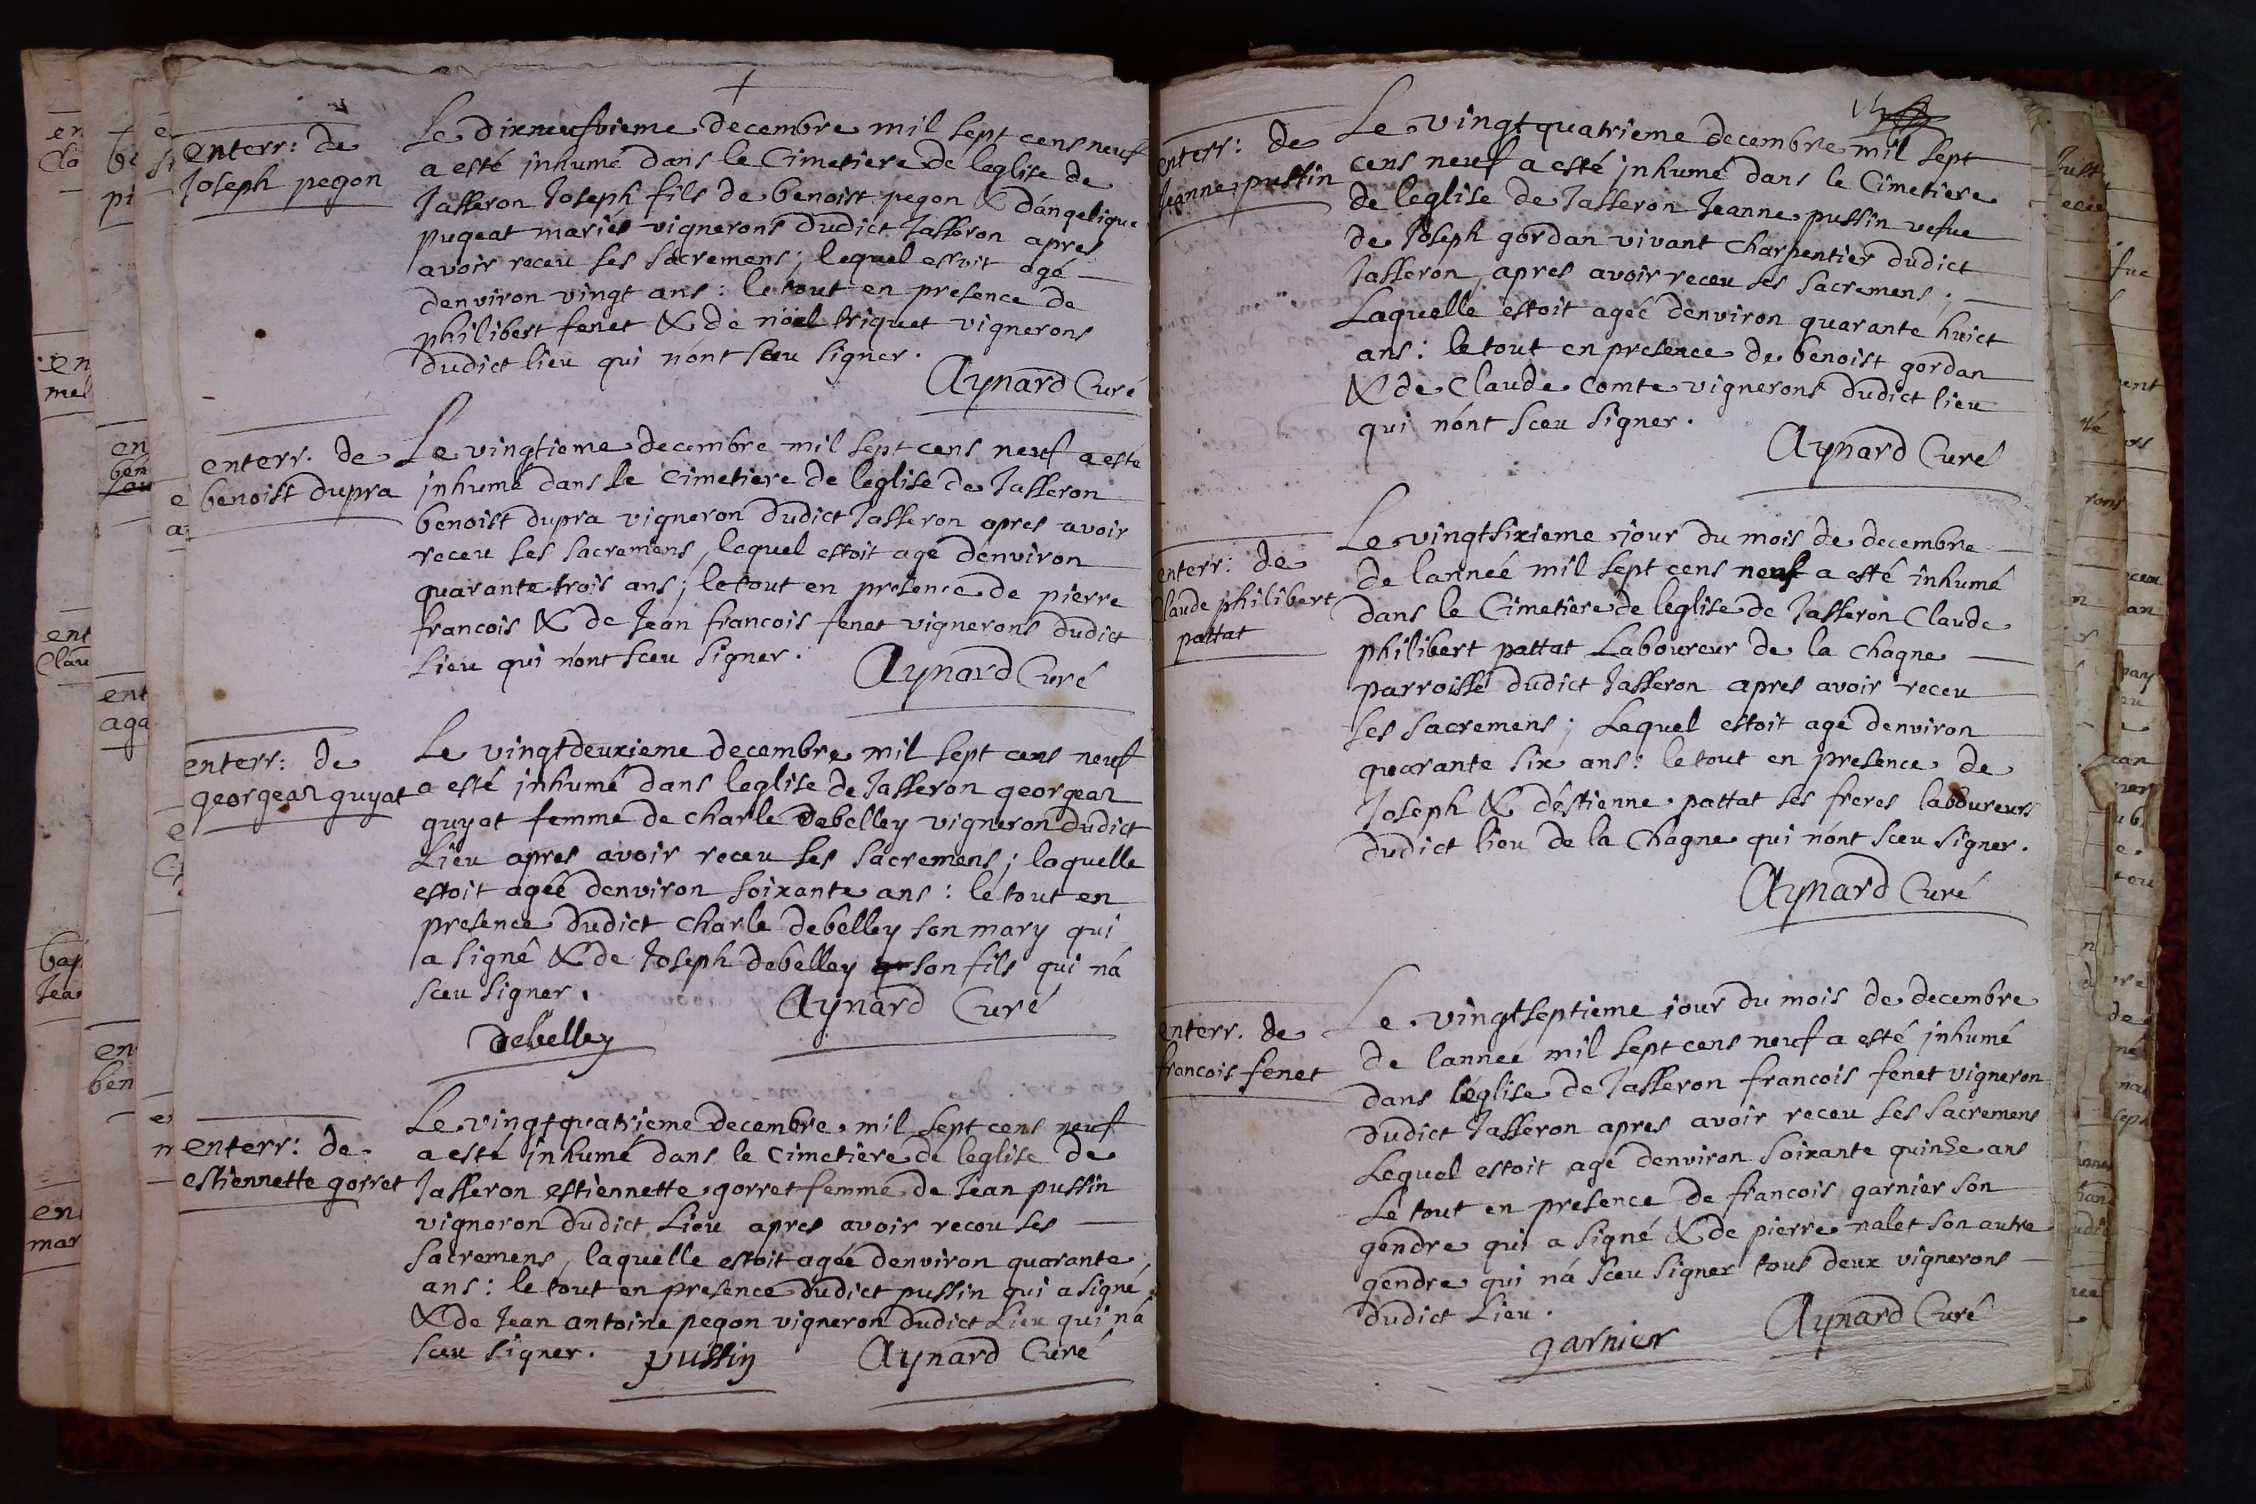 enterr: de
Joseph pegon
Le dixneufvieme decembre mil sept cens neuf
a esté jnhumé dans le Cimetiere de leglise de
Jasseron Joseph fils de benoist pegon & dangelique
pugeat mariés vignerons dudict Jasseron apres
avoir receu ses sacremens, lequel estoit agé
denviron vingt ans : le tout en presence de
philibert fenet & de nöel triquet vignerons
dudict lieu qui nónt sceu signer.
Aynard Curé
enterr. de
benoist dupra
Le vingtieme decembre mil sept cens neuf a esté
jnhumé dans le cimetiere de leglise de Jasseron
benoist dupra vigneron dudict Jasseron apres avoir
receu ses sacremens, lequel estoit agé denviron
quarante trois ans ; le tout en presence de pierre
francois & de Jean francois fenet vignerons dudict
Lieu qui nónt sceu signer.
Aynard Curé
enterr: de
georgean guyat
Le vingtdeuxieme decembre mil sept cens neuf
a esté jnhumé dans leglise de Jasseron georgean
guyat femme de charle Debelley vigneron dudict
Lieu apres avoir receu ses sacremens ; laquelle
estoit ageé denviron soixante ans : le tout en
presence dudict charle debelley son mary qui
a signé & de Joseph debelley son fils qui ná
sceu signer.
Aynard Curé
Debelley
enterr: de
estiennette gorret
Le vingtquatrieme decembre mil sept cens neuf
a esté jnhumé dans le cimetiere de leglise de
Jasseron estiennette gorret femme de Jean pussin
vigneron dudict Lieu apres avoir receu ses
sacremens, laquelle estoit ageé denviron quarante
ans : le tout en presence dudict pussin qui a signé
& de Jean antoine pegon vigneron dudict Lieu qui ná
sceu signer.
pussin
Aynard Curé
enterr: de
Jeanne pussin
Le vingtquatrieme decembre mil sept
cens neuf a esté jnhumé dans le Cimetiere
de leglise de Jasseron Jeanne pussin vefue
de Joseph gordan vivant charpentier dudict
Jasseron, apres avoir receu ses sacremens ;
Laquelle estoit ageé denviron quarante huict
ans : le tout en presence de benoist gordan
& de claude comte vignerons dudict lieu
qui nónt sceu signer.
Aynard Curé
enterr: de
Claude philibert
pattat
Le vingtsixieme jour du mois de decembre
de lanneé mil sept cens neuf a esté inhumé
dans le Cimetiere de leglise de Jasseron Claude
philibert pattat Laboureur de la chagne
parroisse dudict Jasseron apres avoir receu
ses sacremens ; Lequel estoit agé denviron
quarante six ans : le tout en presence de
Joseph & déstienne pattat ses freres laboureurs
dudict lieu de la Chagne qui nónt sceu signer.
Aynard Curé
enterr. de
francois fenet
Le vingtseptieme jour du mois de decembre
de lanneé mil sept cens neuf a esté jnhumé
dans léglise de Jasseron francois fenet vigneron
dudict Jasseron apres avoir receu ses sacremens
Lequel estoit agé denviron soixante quinze ans
Le tout en presence de francois garnier son
gendre qui a signé & de pierre nalet son autre
gendre qui ná sceu signer tous deux vignerons
dudict Lieu.
garnier
Aynard Curé